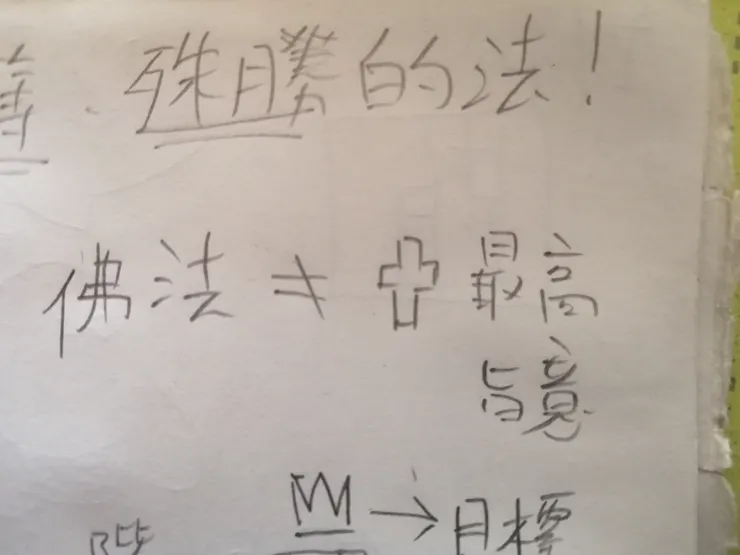 殊勝的法！
佛法≠✞最高
旨意
→目標